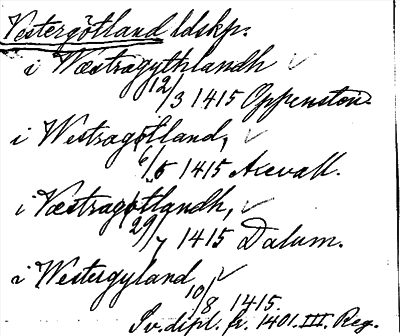 Vestergötland ldskp.
i Wæstragythlandh
12/3 1415 Oppensten.
i Westragötland,
6/5 1415 Acevall.
i Væstragötlandh,
29/7 1415 Dalum.
a Westergyland
10/8 1415.
Sv. dipl. fr. 1401. III. Reg.